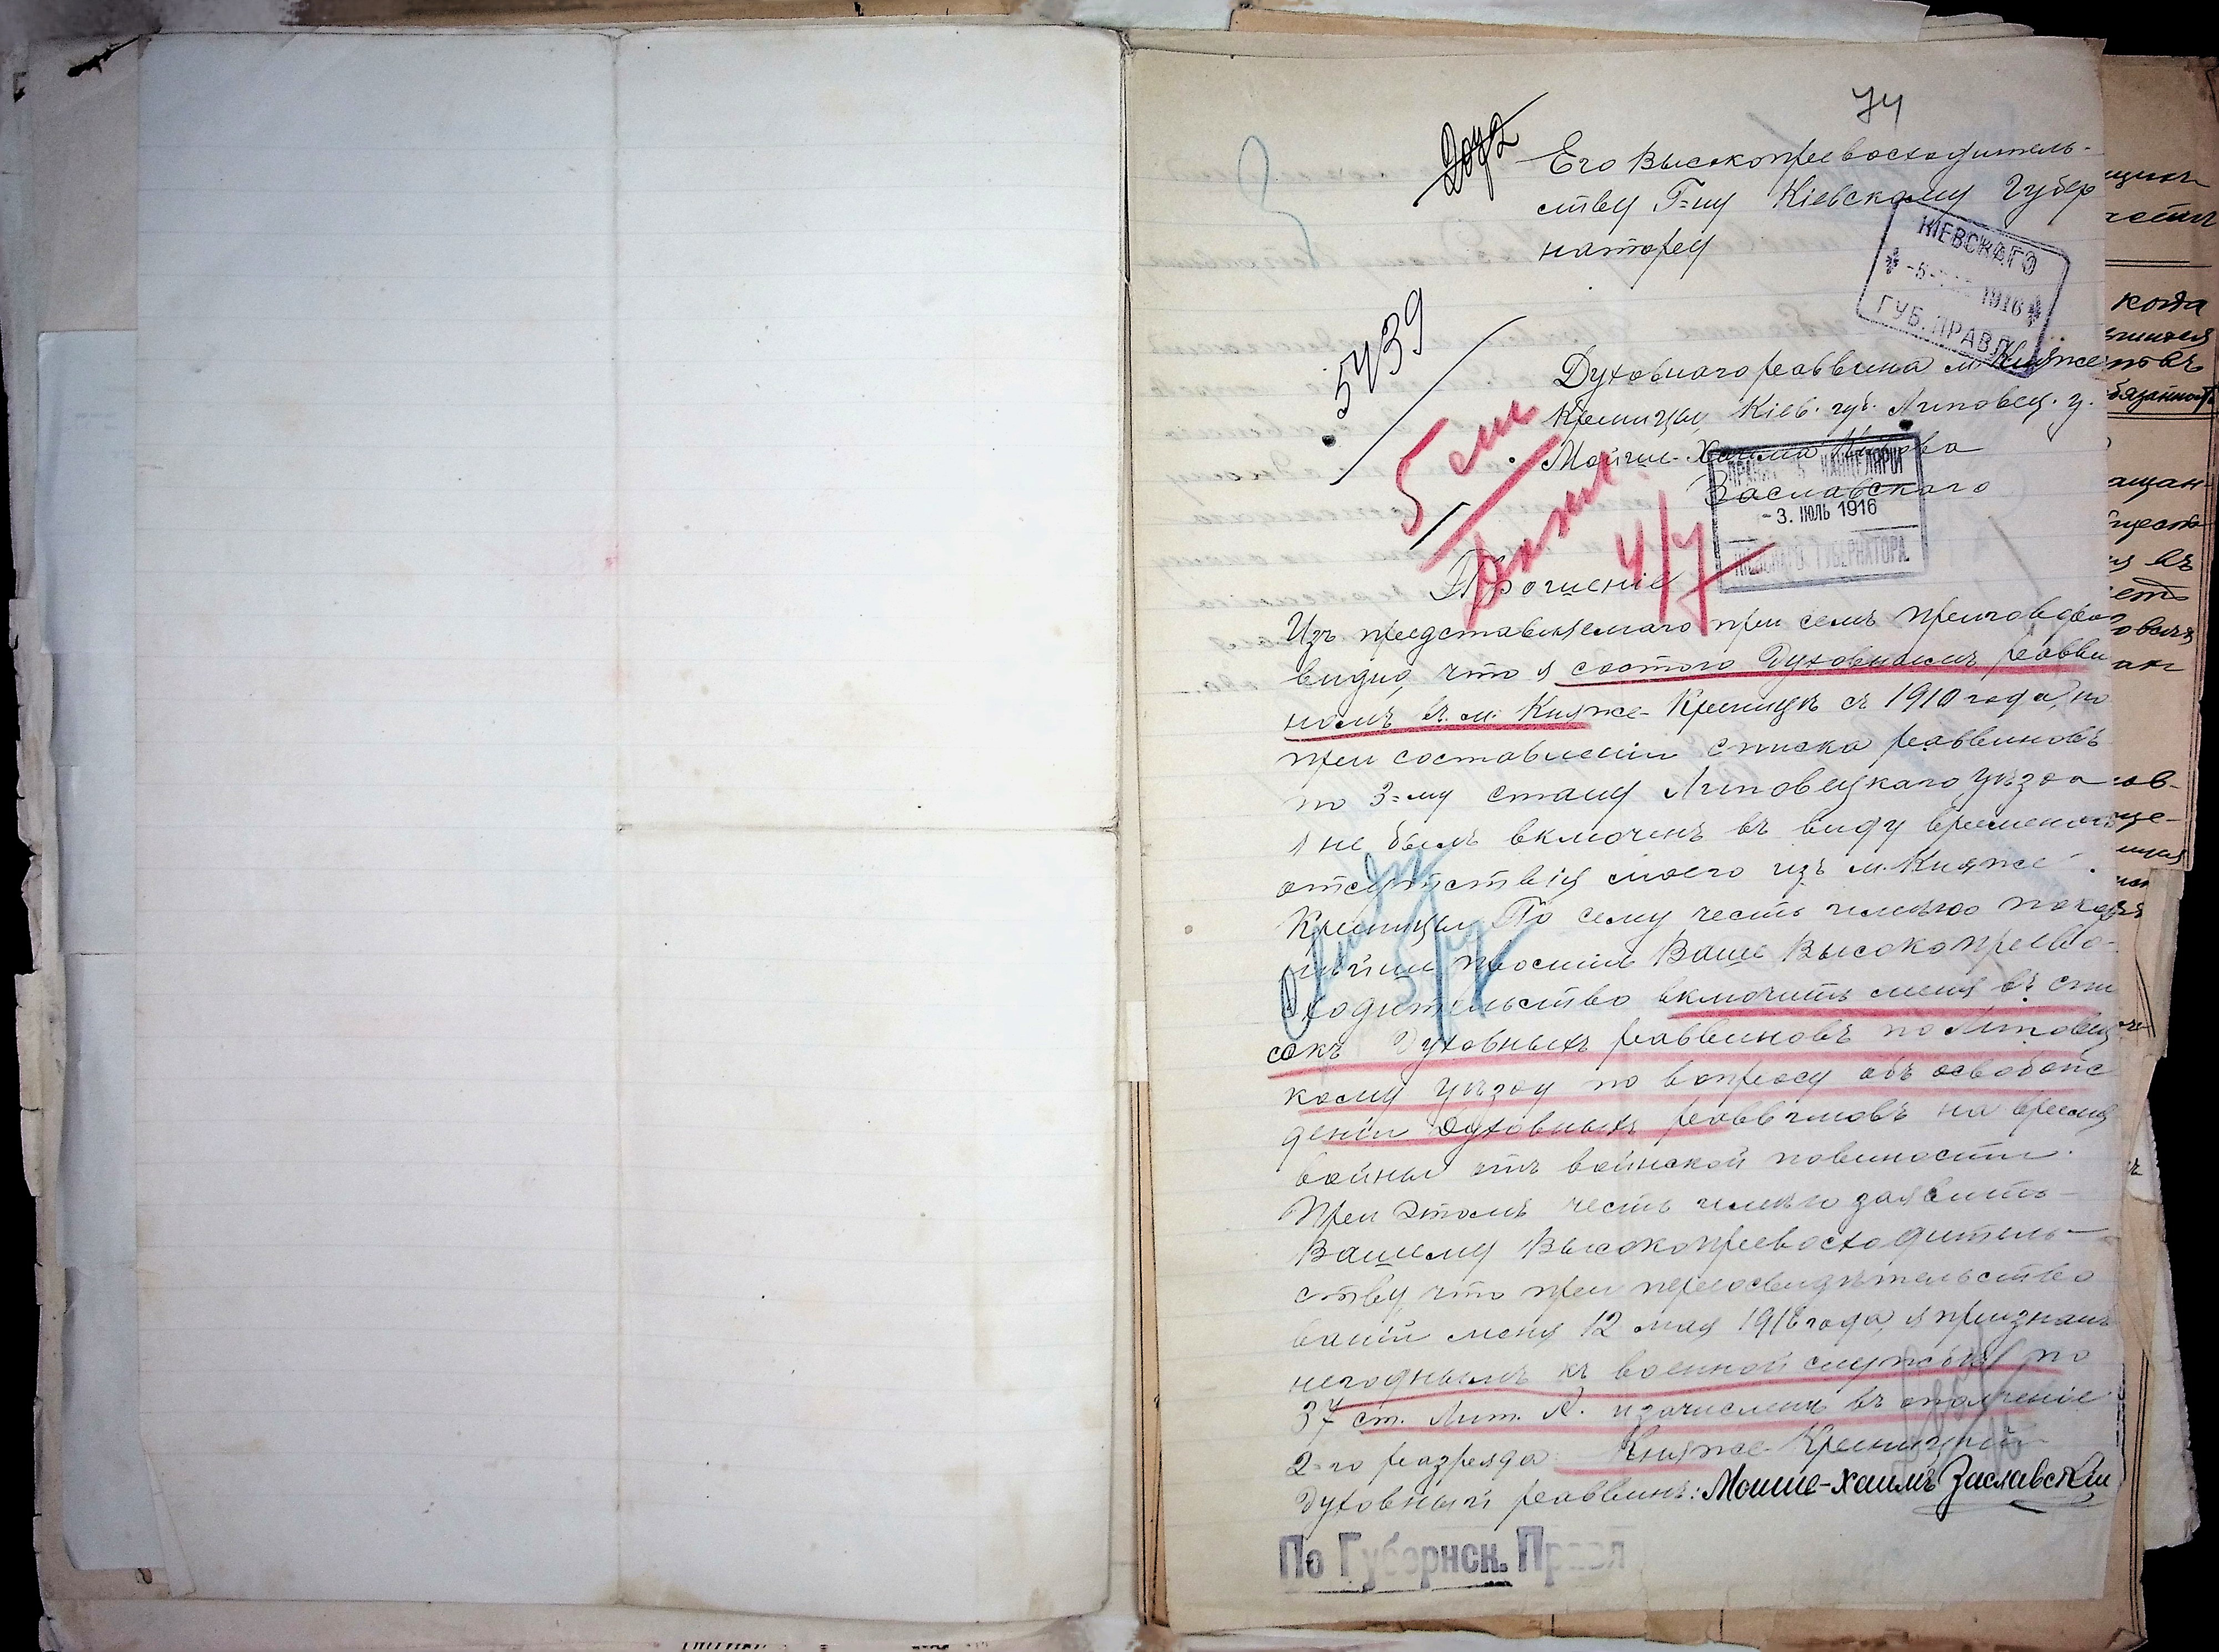 74
Его Высокопревосходитель-
ству Г=ну Кіевскому Губер
натору
КІЕВСКАГО
-5- 1916
ГУБ. ПРАВЛ.
5739
Духовнаго раввина м. Княже
Криницы, Кіев. губ. Липовец. у.
Мойше-Хаима
Заславскаго
КАНЦЕЛЯРІИ
-3. ІЮЛЬ 1916
КІЕВСКАГО ГУБЕРНАТОРА.
5
4/7
Прошеніе
Изъ представляемаго при семъ приговора
видно, что я состою Духовнымъ равви
номъ въ м. Княже-Криницѣ съ 1910 года, но
при составленіи списка раввиновъ
по 3=му стану Липовецкаго уѣзда
я не былъ включенъ въ виду временнаго
отсутствія моего изъ м. Княже
Криницы. По сему честь имѣю покор
нѣйше просить Ваше Высокопрево-
сходительство включить меня въ спи
сокъ Духовныхъ раввиновъ по Липовец
кому уѣзду по вопросу объ освобож
деніи Духовныхъ раввиновъ на время
войны отъ воинской повиности.
При этомъ честь имѣю заявить
Вашему Высокопревосходитель-
ству, что при переосвидѣтельство
ваніи меня 12 мая 1916 года, я признанъ
негоднымъ къ военной службѣ по
37 ст. Лит. А. и зачисленъ въ ополченіе
2=го разряда. Княже-Криницкій
Духовный раввинъ: Мошше-Хаимъ Заславскій
По Губернск. Правл